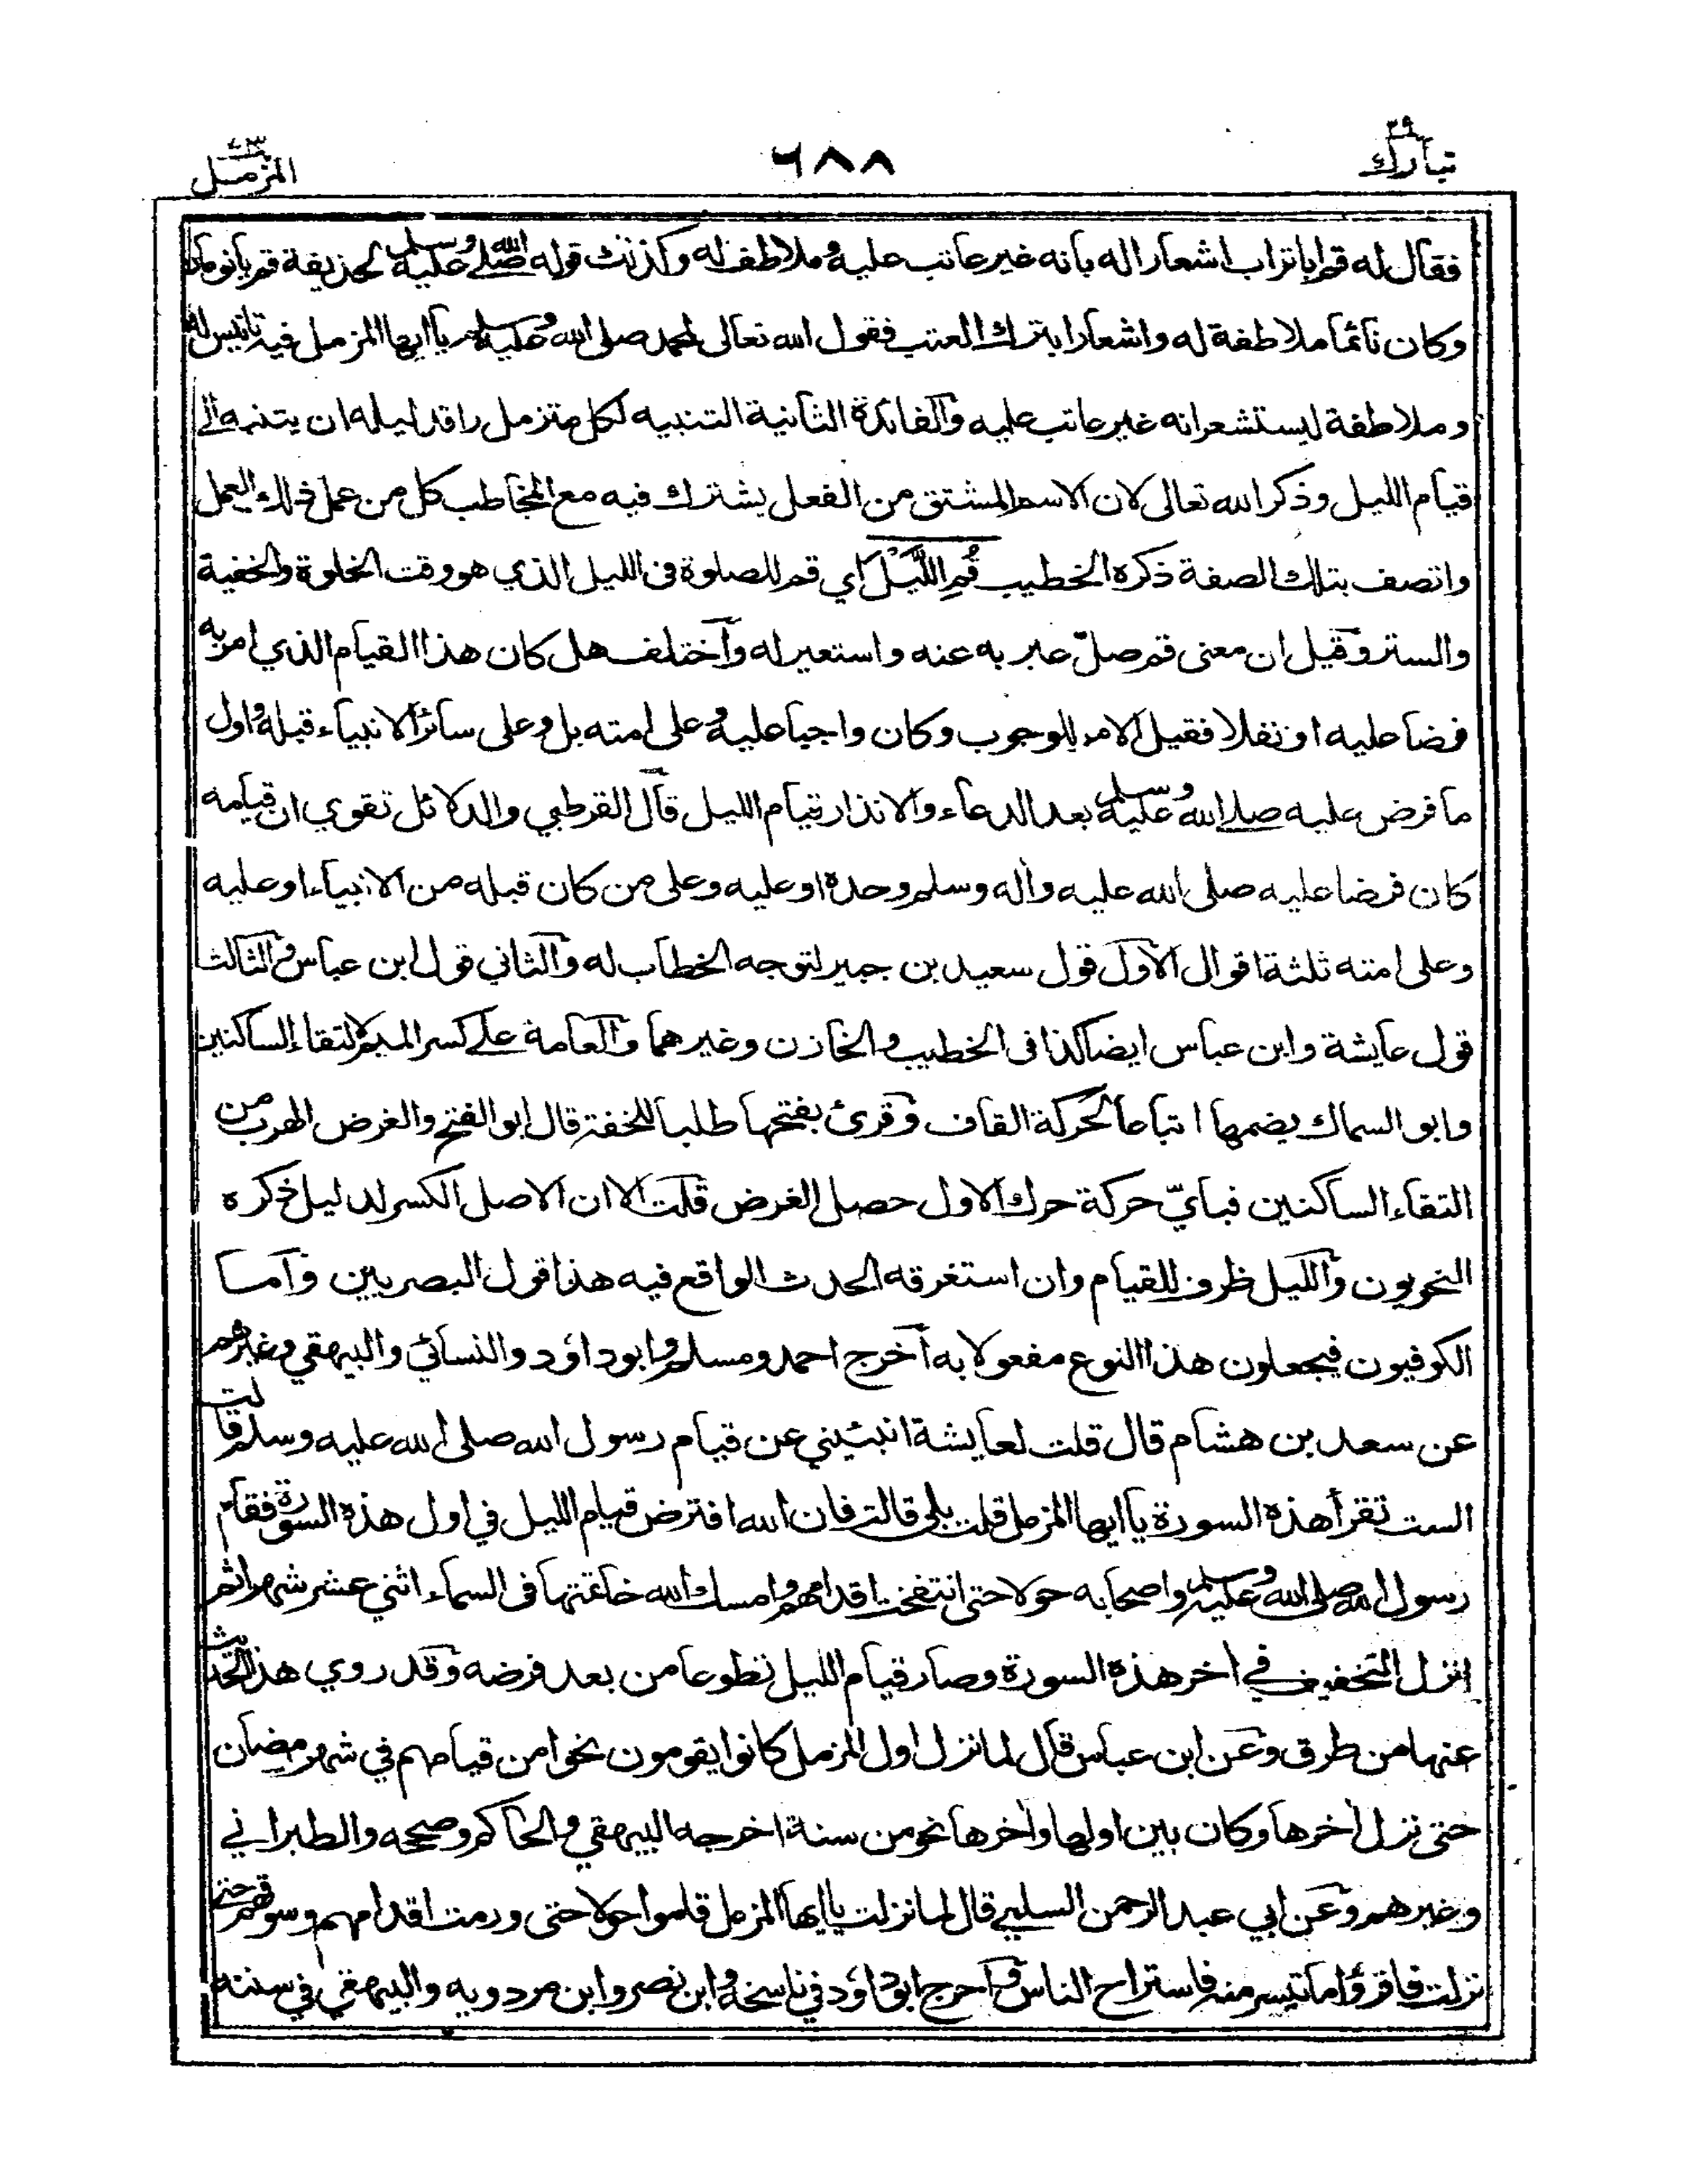 تبارك ٢٩
٦٨٨
المزمل ٧٣
فقال له قم ابا تراب اشعارا له بانه غير عاتب عليه وملاطف له وكذلك قوله صلى الله عليه وسلم لحذيفة قم يا نومان
وكان نائما ملاطفة له واشعارا بترك العتب فقول الله تعالى لمحمد صلى الله عليه وسلم يا ايها المزمل فيه تانيس له
وملاطفة ليستشعر انه غير عاتب عليه والفائدة الثانية التنبيه لكل متزمل راقد ليله ان يتنبه الى
قيام الليل وذكر الله تعالى لان الاسم المشتق من الفعل يشترك فيه مع المخاطب كل من عمل ذلك العمل
واتصف بتلك الصفة ذكره الخطيب قُمِ اللَّيْلَ اي قم للصلوة فى الليل الذي هو وقت الخلوة والخفية
والستر وقيل ان معنى قم صلّ عبر به عنه واستعير له واختلف هل كان هذا القيام الذي امر به
فرضا عليه او نفلا فقيل الامر للوجوب وكان واجبا عليه وعلى امته بل وعلى سائر الانبياء قبله واول
ما فرض عليه صلى الله عليه وسلم بعد الدعاء والانذار قيام الليل قال القرطبي والدلائل تقوي ان قيامه
كان فرضا عليه صلى الله عليه واٰله وسلم وحده او عليه وعلى من كان قبله من الانبياء او عليه
وعلى امته ثلثة اقوال الاول قول سعيد بن جبير لتوجه الخطاب له والثاني قول ابن عباس والثالث
قول عايشة وابن عباس ايضا كذا فى الخطيب والخازن وغيرهما والعامة على كسر الميم لالتقاء الساكنين
وابو السماك بضمها اتباعا لحركة القاف وقرئ بفتحها طلبا للخفة قال ابو الفتح والغرض الهرب من
التقاء الساكنين فبايّ حركة حرك الاول حصل الغرض قلت الا ان الاصل الكسر لدليل ذكره
النحويون والليل ظرف للقيام وان استغرقه الحدث الواقع فيه هذا قول البصريين واما
الكوفيون فيجعلون هذا النوع مفعولا به اخرج احمد ومسلم وابو داؤد والنسائي والبيهقي وغيرهم
عن سعد بن هشام قال قلت لعايشة انبئيني عن قيام رسول الله صلى الله عليه وسلم قالت
الست تقرأ هذه السورة يا ايها المزمل قلت بلى قالت فان الله افترض قيام الليل في اول هذه السورة فقام
رسول الله صلى الله عليه وسلم واصحابه حولا حتى انتفخت اقدامهم وامسك الله خاتمتها فى السماء اثني عشر شهرا ثم
انزل التخفيف في اخر هذه السورة وصار قيام الليل تطوعا من بعد فرضه وقد روي هذا الحديث
عنها من طرق وعن ابن عباس قال لما نزل اول المزمل كانوا يقومون نحوا من قيامهم في شهر رمضان
حتى نزل اٰخرها وكان بين اولها واٰخرها نحو من سنة اخرجه البيهقي والحاكم وصححه والطبراني
وغيرهم وعن ابي عبد الرحمن السلمي قال لما نزلت يا ايها المزمل قاموا حولا حتى ورمت اقدامهم وسوقهم حتى
نزلت فاقرؤا ما تيسر منه فاستراح الناس واخرج ابو داؤد في ناسخه وابن نصر وابن مردويه والبيهقي في سننه